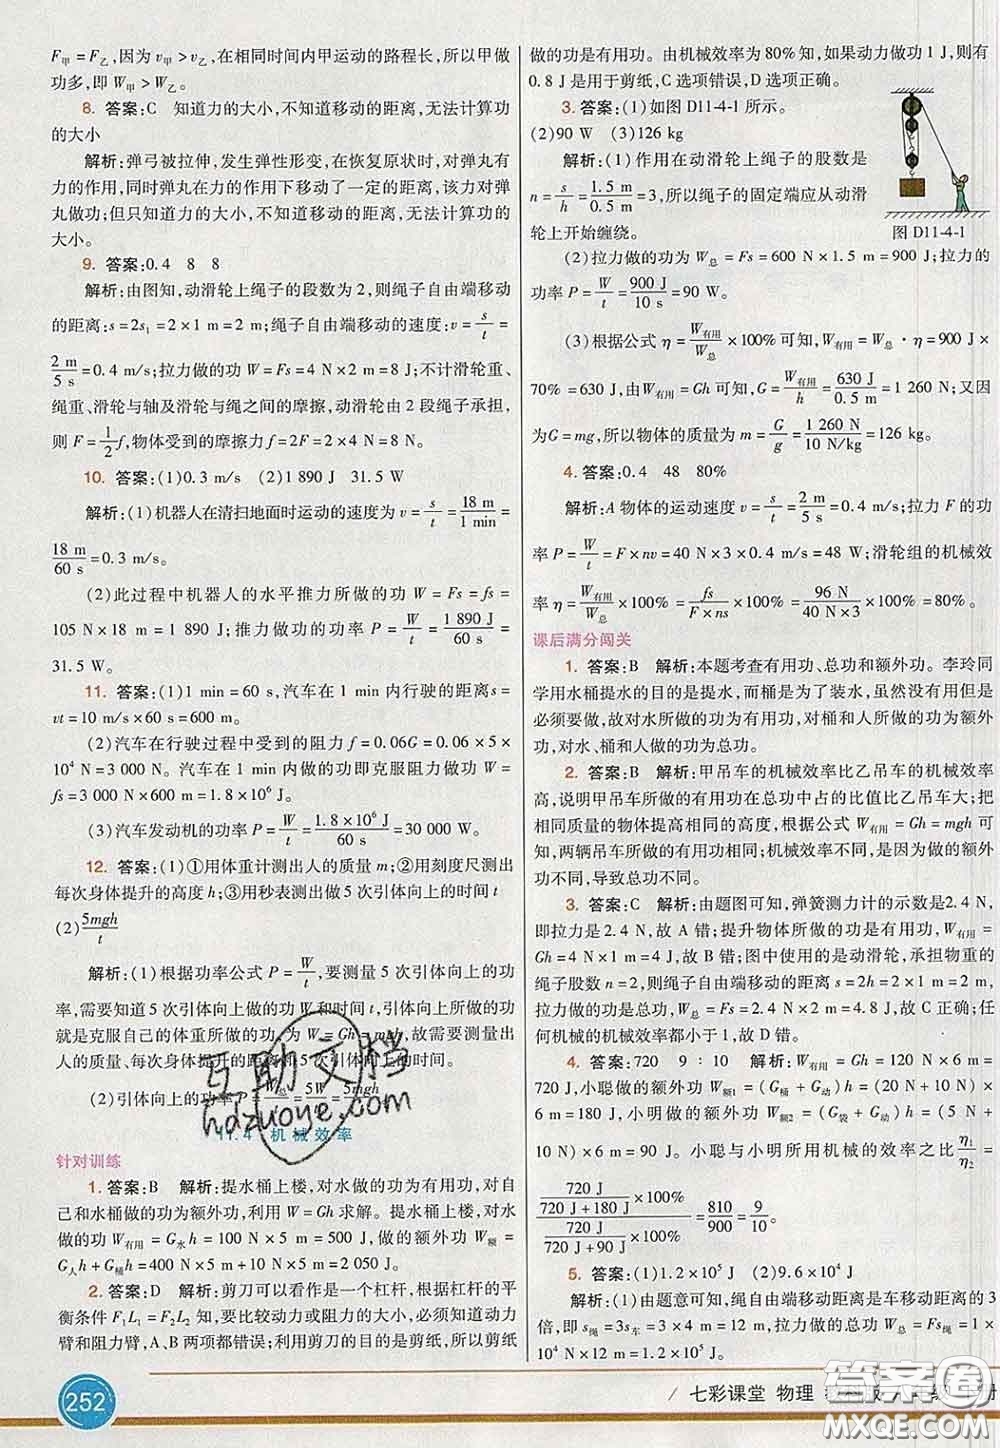 F甲＝F乙,因为 v甲＞v乙,在相同时间内甲运动的路程长,所以甲做
功多,即 W甲＞W乙。
8. 答案:C　知道力的大小,不知道移动的距离,无法计算功
的大小
解析:弹弓被拉伸,发生弹性形变,在恢复原状时,对弹丸有
力的作用,同时弹丸在力的作用下移动了一定的距离,该力对弹
丸做功;但只知道力的大小,不知道移动的距离,无法计算功的
大小。
9. 答案:0.4　8　8
解析:由图知,动滑轮上绳子的段数为 2,则绳子自由端移动
的距离:s＝2s₁＝2×1 m＝2 m;绳子自由端移动的速度:v＝s/t＝
2 m/5 s＝0.4 m/s;拉力做的功 W＝Fs＝4 N×2 m＝8 J;不计滑轮重、
绳重、滑轮与轴及滑轮与绳之间的摩擦,动滑轮由 2 段绳子承担,
则 F＝1/2 f,物体受到的摩擦力 f＝2F＝2×4 N＝8 N。
10. 答案:(1)0.3 m/s　(2)1 890 J　31.5 W
解析:(1)机器人在清扫地面时运动的速度为 v＝s/t＝18 m/1 min＝
18 m/60 s＝0.3 m/s。
(2)此过程中机器人的水平推力所做的功 W＝Fs＝fs＝
105 N×18 m＝1 890 J;推力做功的功率 P＝W/t＝1 890 J/60 s＝
31.5 W。
11. 答案:(1)1 min＝60 s,汽车在 1 min 内行驶的距离 s＝
vt＝10 m/s×60 s＝600 m。
(2)汽车在行驶过程中受到的阻力 f＝0.06G＝0.06×5×
10⁴ N＝3 000 N。汽车在 1 min 内做的功即克服阻力做功 W＝
fs＝3 000 N×600 m＝1.8×10⁶ J。
(3)汽车发动机的功率 P＝W/t＝1.8×10⁶ J/60 s＝30 000 W。
12. 答案:(1)①用体重计测出人的质量 m;②用刻度尺测出
每次身体提升的高度 h;③用秒表测出做 5 次引体向上的时间 t
(2)5mgh/t
解析:(1)根据功率公式 P＝W/t,要测量 5 次引体向上的功
率,需要知道 5 次引体向上做的功 W 和时间 t,引体向上所做的功
就是克服自己的体重所做的功,为 W＝Gh＝mgh,故需要测量出
人的质量、每次身体提升的距离和 5 次引体向上的时间。
(2)引体向上的功率 P＝W总/t＝5W/t＝5mgh/t
互助文档
hdzuoye.com
11.4 机械效率
针对训练
1. 答案:B　解析:提水桶上楼,对水做的功为有用功,对自
己和水桶做的功为额外功,利用 W＝Gh 求解。提水桶上楼,对水
做的功 W有用＝G水h＝100 N×5 m＝500 J,做的额外功 W额＝
G人h＋G桶h＝400 N×5 m＋10 N×5 m＝2 050 J。
2. 答案:D　解析:剪刀可以看作是一个杠杆,根据杠杆的平
衡条件 F₁L₁＝F₂L₂ 知,要比较动力或阻力的大小,必须知道动力
臂和阻力臂,A、B 两项都错误;利用剪刀的目的是剪纸,所以剪纸
252
做的功是有用功。由机械效率为 80%知,如果动力做功 1 J,则有
0.8 J 是用于剪纸,C 选项错误,D 选项正确。
3. 答案:(1)如图 D11-4-1 所示。
(2)90 W　(3)126 kg
解析:(1)作用在动滑轮上绳子的股数是
n＝s/h＝1.5 m/0.5 m＝3,所以绳子的固定端应从动滑
轮上开始缠绕。
图 D11-4-1
(2)拉力做的功为 W总＝Fs＝600 N×1.5 m＝900 J;拉力的
功率 P＝W/t＝900 J/10 s＝90 W。
(3)根据公式 η＝W有用/W总×100%可知,W有用＝W总·η＝900 J×
70%＝630 J,由 W有用＝Gh 可知,G＝W有用/h＝630 J/0.5 m＝1 260 N;又因
为 G＝mg,所以物体的质量为 m＝G/g＝1 260 N/10 N/kg＝126 kg。
4. 答案:0.4　48　80%
解析:A 物体的运动速度 v＝s/t＝2 m/5 s＝0.4 m/s;拉力 F 的功
率 P＝W/t＝F×nv＝40 N×3×0.4 m/s＝48 W;滑轮组的机械效
率 η＝W有用/W总×100%＝fs/F×ns×100%＝96 N/40 N×3×100%＝80%。
课后满分闯关
1. 答案:B　解析:本题考查有用功、总功和额外功。李玲同
学用水桶提水的目的是提水,而桶是为了装水,虽然没有用但是
必须要做,故对水所做的功为有用功,对桶和人所做的功为额外
功,对水、桶和人做的功为总功。
2. 答案:B　解析:甲吊车的机械效率比乙吊车的机械效率
高,说明甲吊车所做的有用功在总功中占的比值比乙吊车大;把
相同质量的物体提高相同的高度,根据公式 W有用＝Gh＝mgh 可
知,两辆吊车所做的有用功相同;机械效率不同,是因为做的额外
功不同,导致总功不同。
3. 答案:C　解析:由题图可知,弹簧测力计的示数是2.4 N,
即拉力是2.4 N,故 A 错;提升物体所做的功是有用功,W有用＝
Gh＝4 N×1 m＝4 J,故 B 错;图中使用的是动滑轮,承担物重的
绳子股数 n＝2,绳子自由端移动的距离 s＝2h＝2×1 m＝2 m,
拉力做的功是总功,W总＝Fs＝2.4 N×2 m＝4.8 J,故 C 正确;任
何机械的机械效率都小于 1,故 D 错。
4. 答案:720　9∶10　解析:W有用＝Gh＝120 N×6 m＝
720 J,小聪做的额外功 W额1＝(G桶＋G动)h＝(20 N＋10 N)×
6 m＝180 J,小明做的额外功 W额2＝(G袋＋G动)h＝(5 N＋
10 N)×6 m＝90 J。小聪与小明所用机械的效率之比 η₁/η₂＝
(720 J/720 J＋180 J×100%)/(720 J/720 J＋90 J×100%)＝810/900＝9/10。
5. 答案:(1)1.2×10⁵ J　(2)9.6×10⁴ J
解析:(1)由题意可知,绳自由端移动距离是车移动距离的 3
倍,即 s绳＝3s车＝3×4 m＝12 m,拉力做的总功 W总＝Fs绳＝1×
10⁴ N×12 m＝1.2×10⁵ J。
七彩课堂 物理
答案圈
MXQE.COM